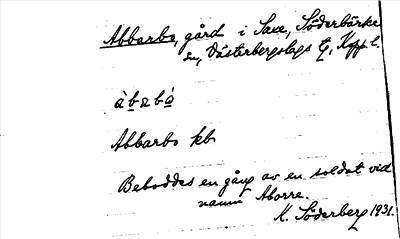 Abbarbo, gård i Saxe, Söderbärke
sn, Västerbergslags tg, Kopp. l.
àbabó
Abbarbo kb.
Beboddes en gång av en soldat vid
namn Aborre.
K. Söderberg 1931.